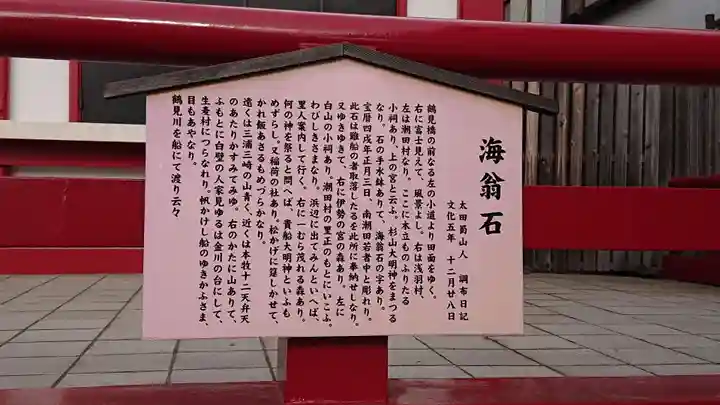 海翁石
太田蜀山人　調布日記
文化五年　十二月廿八日
鶴見橋の前なる左の小道より田面をゆく。
右に富士見えて、風景よし。右は浅羽村、
左は潮田村なり。ここに木立ものふりたる
小祠あり、上の宮と云ふ。杉山大明神をまつる
なり。石の手水鉢ありて、海翁石の字あり。
宝暦四戌年正月三日、南潮田若者中と彫れり。
此石は難船の者取落したるを此所に奉納せしなり。
又ゆきゆきて、右に伊勢の宮の森あり、左に
白山の小祠あり。潮田村の里正のもとにいこふ。
わびしきさまなり。浜辺に出てみんといへば、
里人案内して行く。右に一むら茂れる森あり。
何の神を祭ると問へば、貴船大明神といふも
めずらし。又稲荷の社あり。松かげに莚しかせて、
かれ飯あさるもめづらかなり。
遠くは三浦三崎の山青く、近くは本牧十二天弁天
のあたりかすみてみゆ。右のかたに山ありて、
ふもとに白壁の人家見ゆるは金川の台にして、
生麦村につらなれり。帆かけし船のゆきかふさま、
目もあやなり。
鶴見川を船にて渡り云々